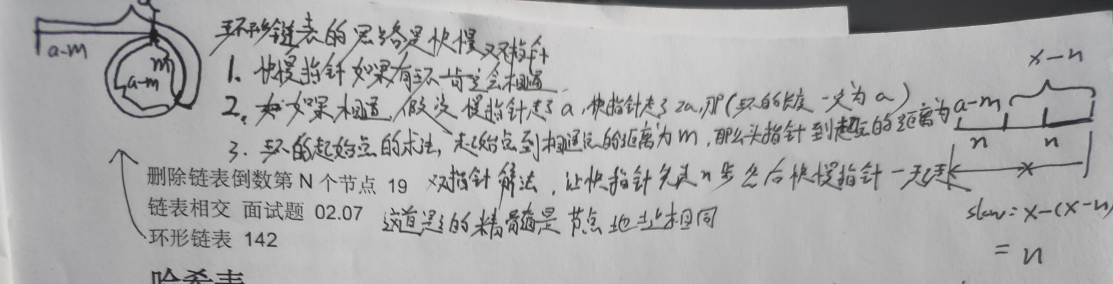 a-m
m
a-m
环形链表的思路是快慢双指针
1. 快慢指针如果有环一定会相遇
2. 如果相遇, 假设慢指针走了a, 快指针走了2a, 那(环的长度一定为a)
3. 环的起始点的求法, 起始点到相遇点的距离为m, 那么头指针到起点的距离为a-m
删除链表倒数第 N 个节点 19 双指针解法, 让快指针先走n步 然后快慢指针一起走
链表相交 面试题 02.07 这道题的精髓是节点地址相同
环形链表 142
哈希表
x-n
n n
x
slow = x-(x-n)
= n